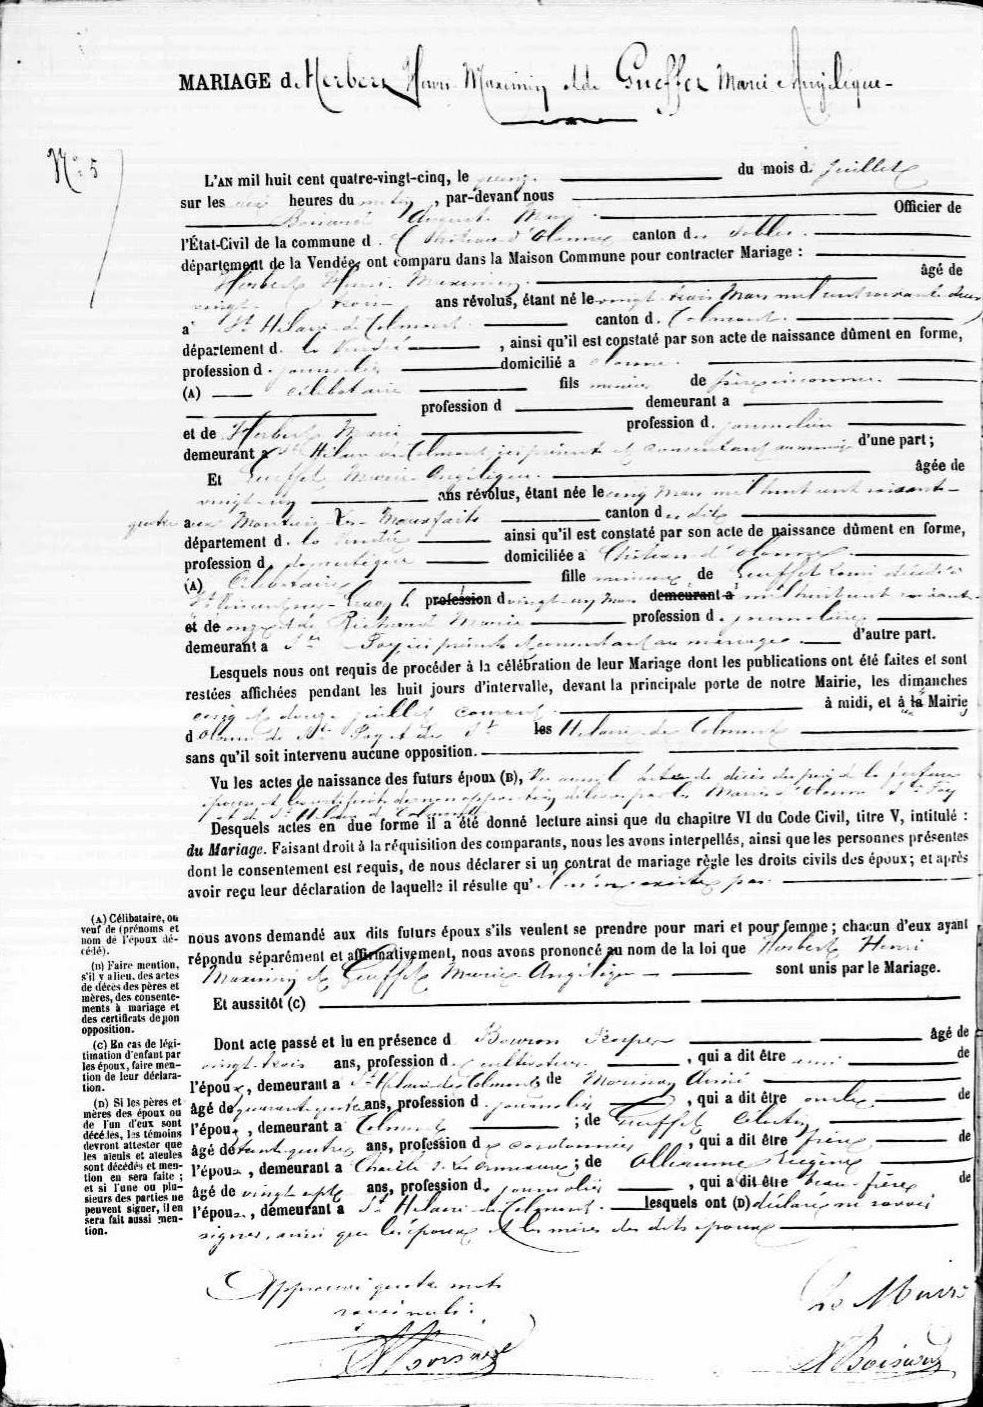 MARIAGE de Herbert Henri Maximin et de Gueffet Marie Angélique
N° 5
L'AN mil huit cent quatre-vingt-cinq, le quinze du mois de Juillet
sur les heures du matin, par-devant nous
Boisard Auguste Officier de
l'État-Civil de la commune de Château d'Olonne canton des Sables
département de la Vendée, ont comparu dans la Maison Commune pour contracter Mariage :
Herbert Henri Maximin âgé de
vingt trois ans révolus, étant né le vingt trois Mars mil huit cent soixante deux
à St Hilaire de Talmont canton de Talmont
département de la Vendée, ainsi qu'il est constaté par son acte de naissance dûment en forme,
profession de journalier domicilié à Olonne
(A) célibataire fils mineur de père inconnu
profession d demeurant a
et de Herbert Marie profession de journalière
demeurant à St Hilaire de Talmont ici présente et consentant au mariage d'une part ;
Et Gueffet Marie Angélique âgée de
vingt un ans révolus, étant née le cinq Mars mil huit cent soixante
quatre aux Moutiers les Mauxfaits canton du dit
département de la Vendée ainsi qu'il est constaté par son acte de naissance dûment en forme,
profession de domestique domiciliée a Château d'Olonne
(A) Célibataire fille mineure de Gueffet Louis décédé à
St Vincent sur Graon le profession d vingt un Mars demeurant a mil huit cent soixante
et de onze et de Richard Marie profession de journalière
demeurant a Ste Foy ici présente et consentant au mariage d'autre part.
Lesquels nous ont requis de procéder à la célébration de leur Mariage dont les publications ont été faites et sont
restées affichées pendant les huit jours d'intervalle, devant la principale porte de notre Mairie, les dimanches
cinq et douze juillet courant à midi, et à la Mairie
d'Olonne de Ste Foy et de St les Hilaire de Talmont
sans qu'il soit intervenu aucune opposition.
Vu les actes de naissance des futurs époux (B), Vu aussi l'acte de décès du père de la future
épouse et les certificats de non opposition délivrés par les Maires d'Olonne Ste Foy
et de St Hilaire de Talmont
Desquels actes en due forme il a été donné lecture ainsi que du chapitre VI du Code Civil, titre V, intitulé :
du Mariage. Faisant droit à la réquisition des comparants, nous les avons interpellés, ainsi que les personnes présentes
dont le consentement est requis, de nous déclarer si un contrat de mariage règle les droits civils des époux ; et après
avoir reçu leur déclaration de laquelle il résulte qu'il n'en existe pas
nous avons demandé aux dits futurs époux s'ils veulent se prendre pour mari et pour femme ; chacun d'eux ayant
répondu séparément et affirmativement, nous avons prononcé au nom de la loi que Herbert Henri
Maximin et Gueffet Marie Angélique sont unis par le Mariage.
Et aussitôt (C)
Dont acte passé et lu en présence de Bouron Prosper âgé de
vingt trois ans, profession de cultivateur, qui a dit être ami de
l'époux, demeurant a St Hilaire de Talmont ; de Morineau Aimé
âgé de quarante ans, profession de journalier, qui a dit être oncle de
l'époux, demeurant a Talmont ; de Gueffet Célestin
âgé de trente quatre ans, profession de cordonnier, qui a dit être frère de
l'épouse, demeurant a ; de Alleaume Eugène
âgé de vingt sept ans, profession de journalier, qui a dit être beau-frère de
l'épouse, demeurant a St Hilaire de Talmont lesquels ont (D) déclaré ne savoir
signer, ainsi que les époux et les mères des dits époux
(A) Célibataire, ou
veuf de (prénoms et
nom de l'époux dé-
cédé).
(B) Faire mention,
s'il y a lieu, des actes
de décès des pères et
mères, des consente-
ments à mariage et
des certificats de non
opposition.
(C) En cas de légi-
timation d'enfant par
les époux, faire men-
tion de leur déclara-
tion.
(D) Si les pères et
mères des époux ou
de l'un d'eux sont
décédés, les témoins
devront attester que
les aïeuls et aïeules
sont décédés et men-
tion en sera faite ;
et si l'une ou plu-
sieurs des parties ne
peuvent signer, il en
sera fait aussi men-
tion.
Approuvé quatre mots
rayés nuls :
A Boisard
Le Maire
A Boisard